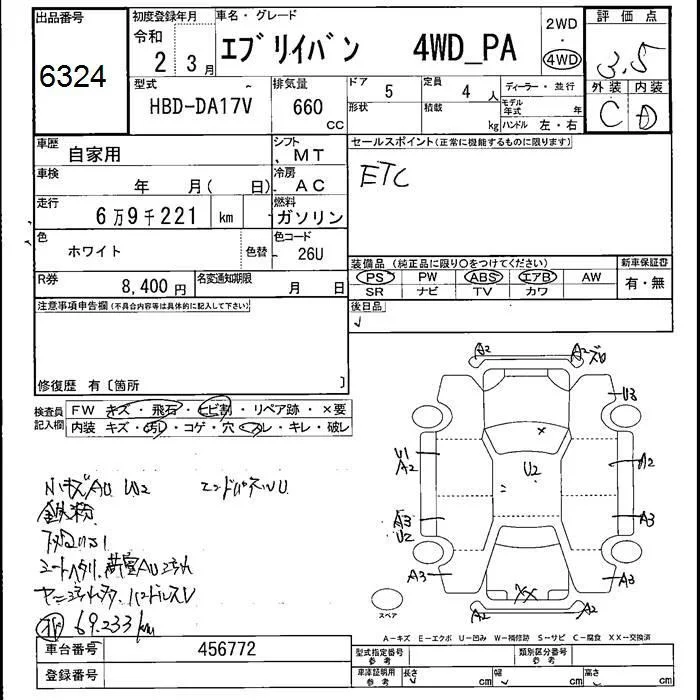 出品番号
6324
初度登録年月
令和
2 3月
車名・グレード
エブリイバン 4WD_PA
2WD
・
4WD
評価点
3.5
外装 内装
C D
型式
HBD-DA17V
排気量
660
cc
ドア
5
定員
4 人
形状
積載
kg
ディーラー・並行
モデル
年式 年
ハンドル 左・右
車歴
自家用
シフト
MT
セールスポイント(正常に機能するものに限ります)
ETC
車検
年 月( 日)
冷房
AC
走行
6万9千221 km
燃料
ガソリン
色
ホワイト
色替
色コード
26U
装備品(純正品に限り○をつけてください)
PS PW ABS エアB AW
SR ナビ TV カワ
新車保証書
有・無
R券
8,400円
名変通知期限
月 日
後日品
注意事項申告欄(不具合内容等は具体的に記入して下さい)
修復歴 有〔箇所 〕
検査員
記入欄
FW キズ・飛石・ヒビ割・リペア跡・×要
内装 キズ・汚レ・コゲ・穴・スレ・キレ・破レ
A2 A2
U3
U1
A2
U2
A2
A3
U2
A3
A3 A3
XX
A2 A2
鉄粉
69.233km
スペア
A-キズ E-エクボ U-凹み W-補修跡 S-サビ C-腐食 XX-交換済
車台番号
456772
登録番号
型式指定番号
参考
類別区分番号
参考
車庫証明用
参考
長さ cm
幅 cm
高さ cm